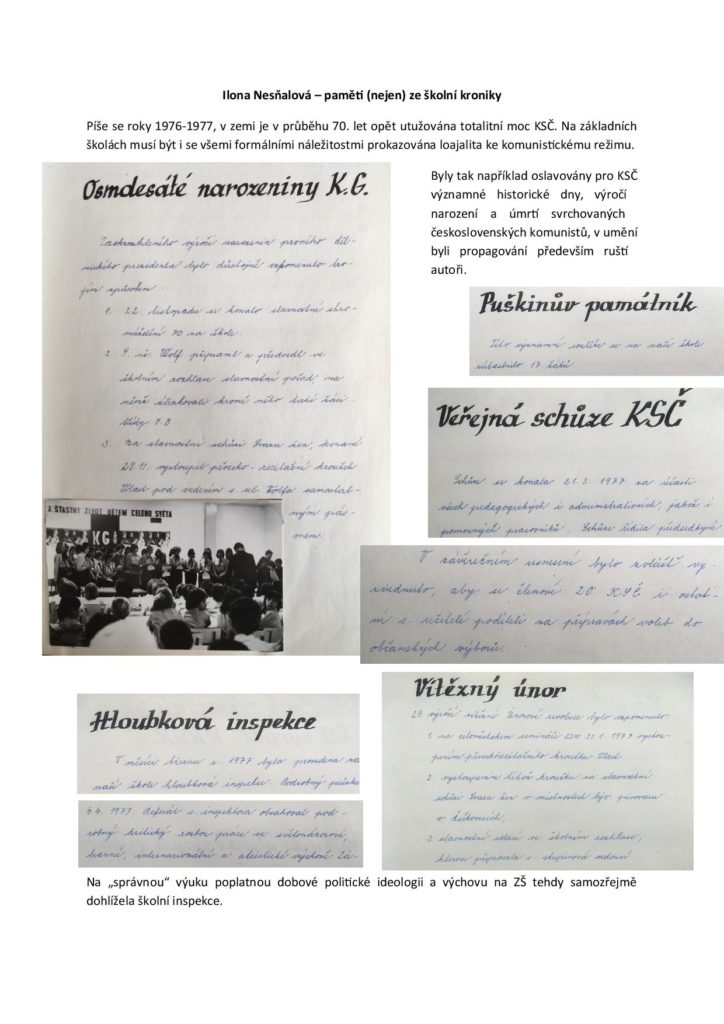 Ilona Nesňalová – paměti (nejen) ze školní kroniky
Píše se roky 1976-1977, v zemi je v průběhu 70. let opět utužována totalitní moc KSČ. Na základních
školách musí být i se všemi formálními náležitostmi prokazována loajalita ke komunistickému režimu.
Osmdesáté narozeniny K.G.
Zaokrouhleného výročí narozenin prvního děl-
nického prezidenta bylo důstojně vzpomenuto
způsobem
1. 22. listopadu se konalo slavnostní shro-
máždění PO na škole.
2. Wolf připravil a předvedl ve
školním rozhlase slavnostní pořad, na
němž účinkovali kromě něho také žáci
třídy 7. B
3. Na slavnostní schůzi Svazu žen, konané
29.11. vystoupil pěvecko-recitační kroužek
Vlast pod vedením s. uč. Wolfa samostat-
ným pás-
mem.
A ŠŤASTNÝ ŽIVOT DĚTEM CELÉHO SVĚTA
KG
Byly tak například oslavovány pro KSČ
významné historické dny, výročí
narození a úmrtí svrchovaných
československých komunistů, v umění
byli propagováni především ruští
autoři.
Puškinův památník
Této významné soutěže se na naší škole
účastnilo 17 žáků.
Veřejná schůze KSČ
Schůze se konala 21.3.1977 za účasti
všech pedagogických i administrativních, jakož i
pomocných pracovníků. Schůzi řídila předsedkyně
V závěrečném usnesení bylo zvlášť vy-
zvednuto, aby se členové ZO KSČ i ostat-
ní s. učitelé podíleli na přípravách voleb do
občanských výborů.
Hloubková inspekce
V měsíci březnu r. 1977 byla provedena na
naší škole hloubková inspekce. Podrobný
4.4. 1977. Referát s. inspektora obsahoval pod-
robný kritický rozbor práce ve světonázorové,
branné, internacionální a ateistické výchově
Vítězný únor
29. výročí vítězné Únorové revoluce bylo vzpomenuto
1. na celoměstském semináři SSM 31.1.1977 vystou-
pením pěveckorecitačního kroužku Vlast
2. vystoupením téhož kroužku na slavnostní
schůzi Svazu žen v místnostech býv. pivovaru
v
3. slavnostní relací ve školním rozhlase,
kterou připravila s. skupinová vedoucí
Na „správnou“ výuku poplatnou dobové politické ideologii a výchovu na ZŠ tehdy samozřejmě
dohlížela školní inspekce.